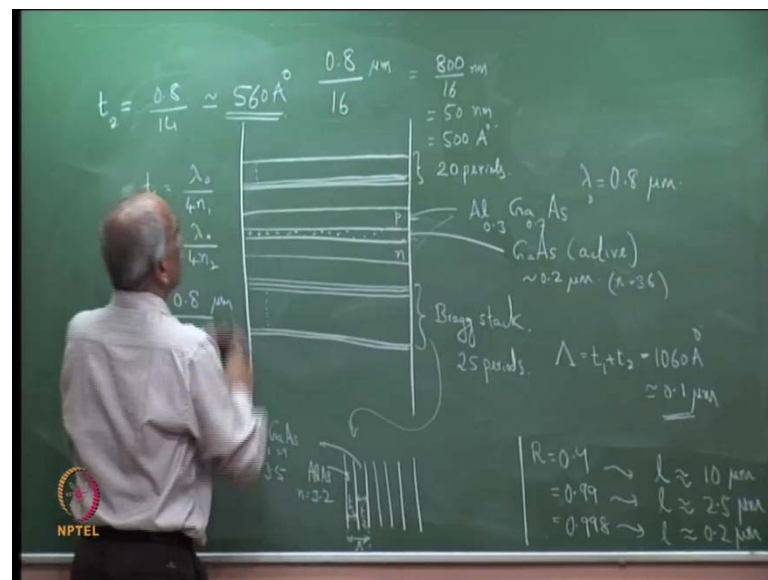 t₂ = 0.8/14 ≃ 560 A°
0.8/16 μm = 800/16 nm
= 50 nm
= 500 A°
20 periods.
= λ₀/4n₁
λ₀/4n₂
0.8 μm
p
n
λ₀ = 0.8 μm.
Al0.3 Ga0.7 As
GaAs (active)
~0.2 μm. (n=3.6)
Bragg stack.
25 periods.
Λ = t₁+t₂ = 1060 A°
≃ 0.1 μm
GaAs
3.5
AlAs
n=3.2
Λ
R = 0.4 → l ≈ 10 μm
= 0.99 → l ≈ 2.5 μm
= 0.998 → l ≈ 0.2 μm
NPTEL